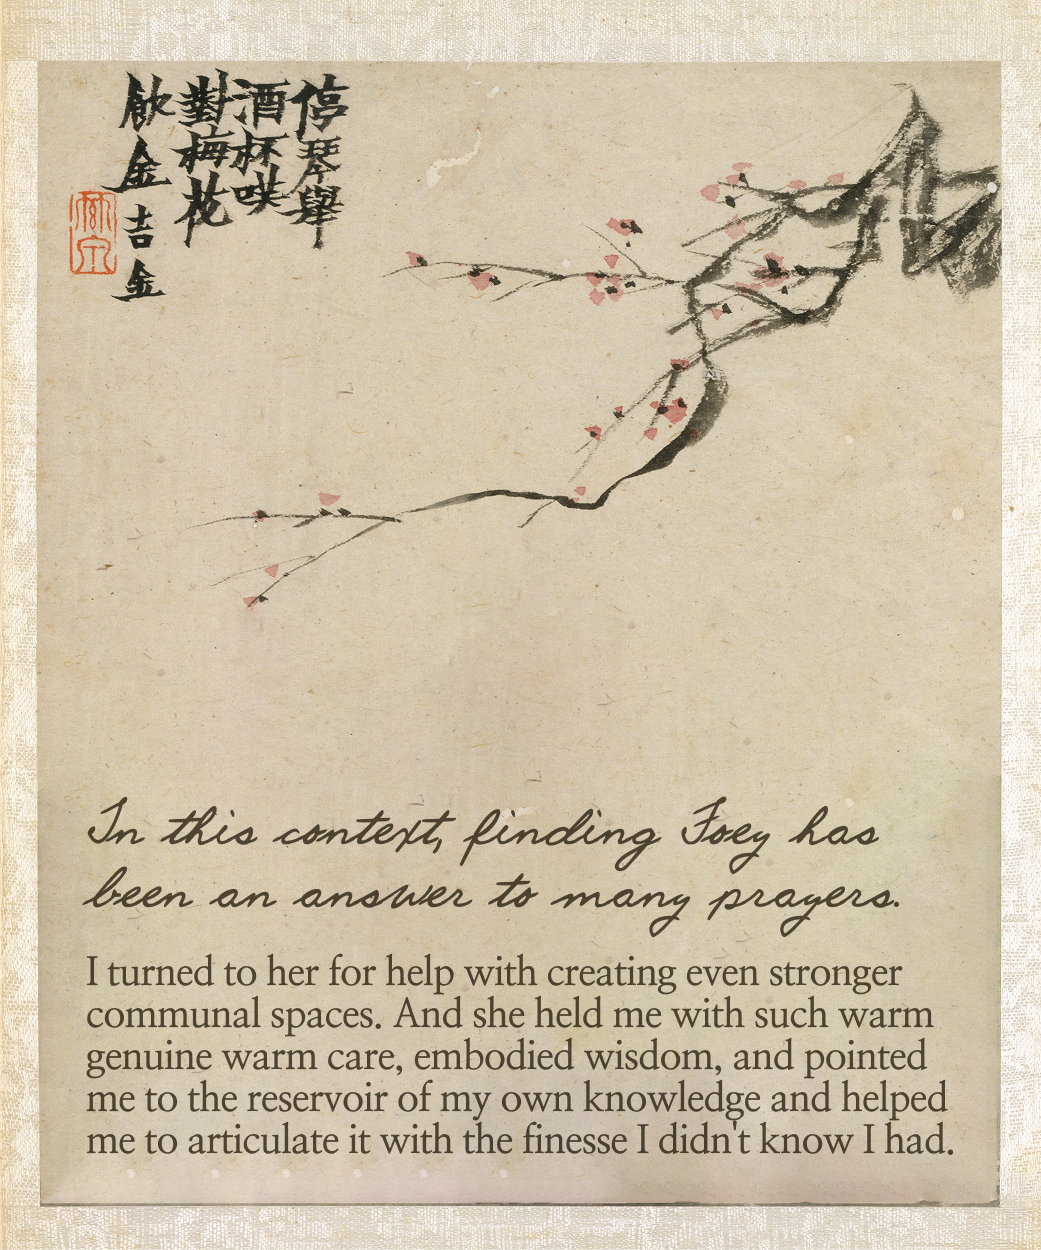 停琴舉
酒杯咲
對梅花
飲金吉金
In this context, finding Joey has
been an answer to many prayers.
I turned to her for help with creating even stronger
communal spaces. And she held me with such warm
genuine warm care, embodied wisdom, and pointed
me to the reservoir of my own knowledge and helped
me to articulate it with the finesse I didn't know I had.